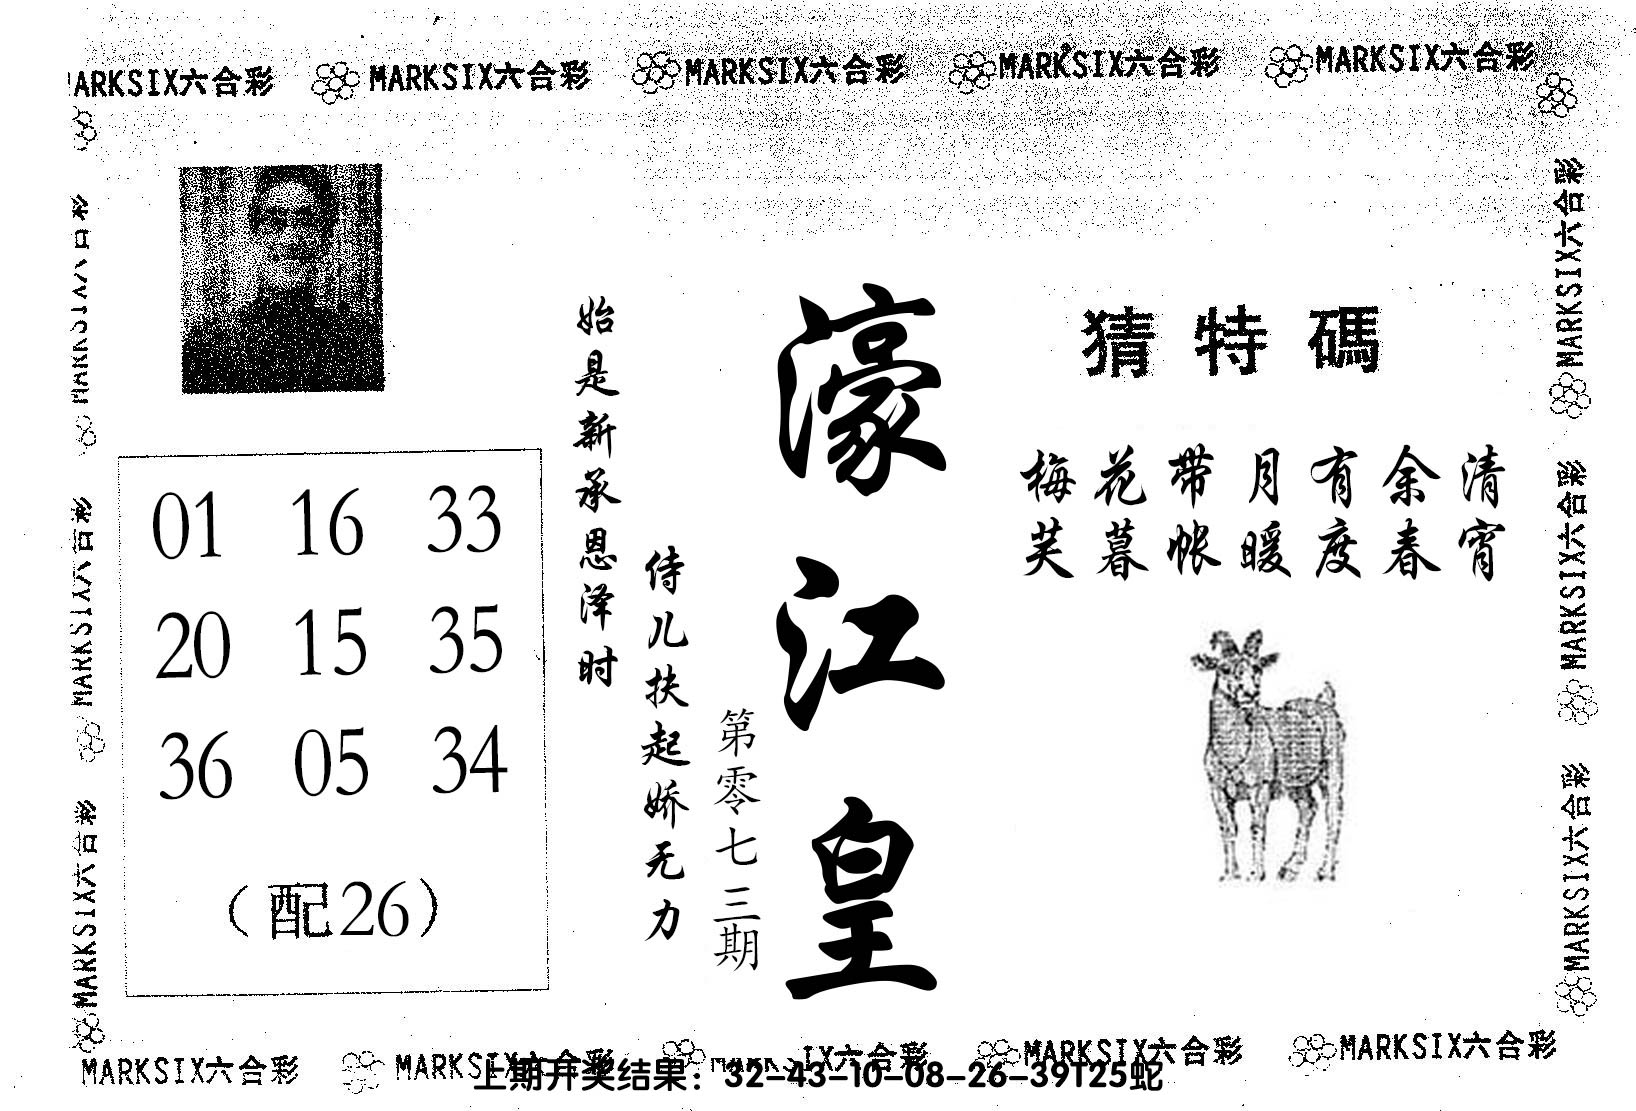 MARKSIX六合彩 MARKSIX六合彩 MARKSIX六合彩 MARKSIX六合彩 MARKSIX六合彩
猜特碼
梅花带月有余清
芙暮帐暖度春宵
濠江皇
第零七三期
始是新承恩泽时
侍儿扶起娇无力
01 16 33
20 15 35
36 05 34
（配26）
MARKSIX六合彩
MARKSIX六合彩
MARKSIX六合彩
MARKSIX六合彩
MARKSIX六合彩
MARKSIX六合彩
MARKSIX六合彩 MARKSIX六合彩 MARKSIX六合彩 MARKSIX六合彩 MARKSIX六合彩
上期开奖结果：32-43-10-08-26-39T25蛇